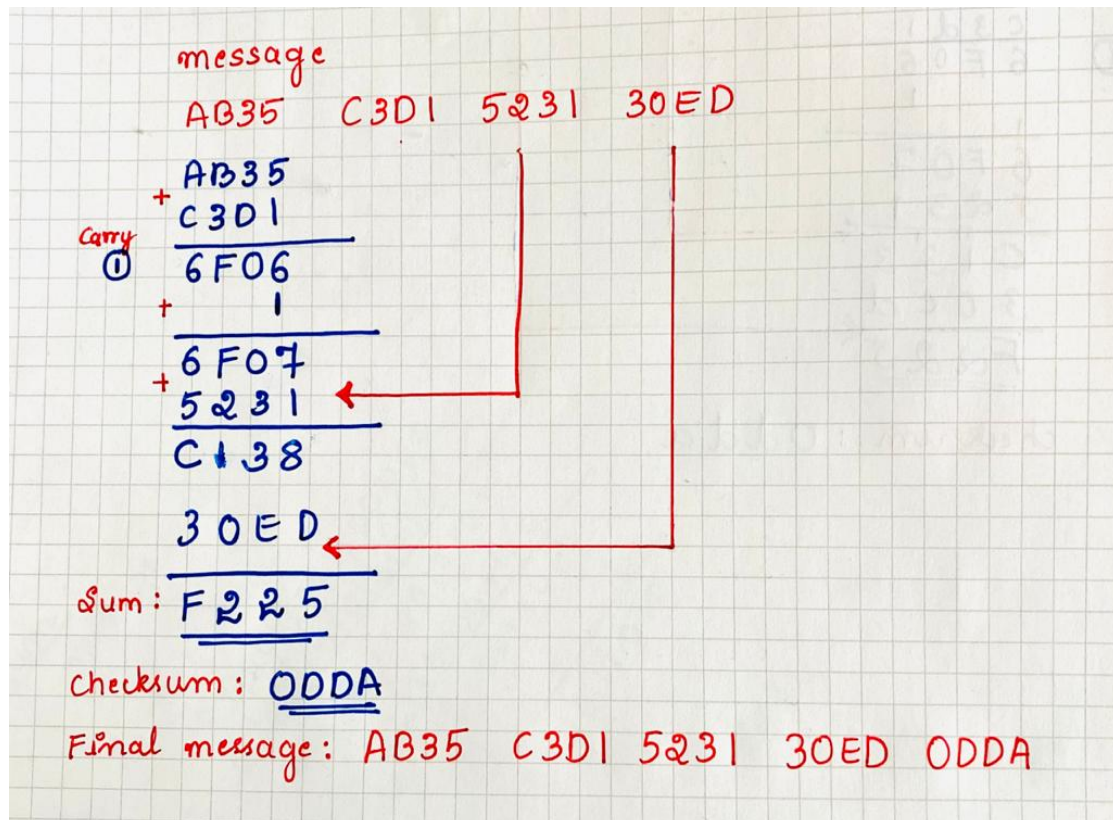 message
AB35 C3D1 5231 30ED
AB35
+
C3D1
Carry
① 6F06
+ 1
6F07
+
5231
C138
30ED
Sum: F225
checksum: 0DDA
Final message: AB35 C3D1 5231 30ED 0DDA